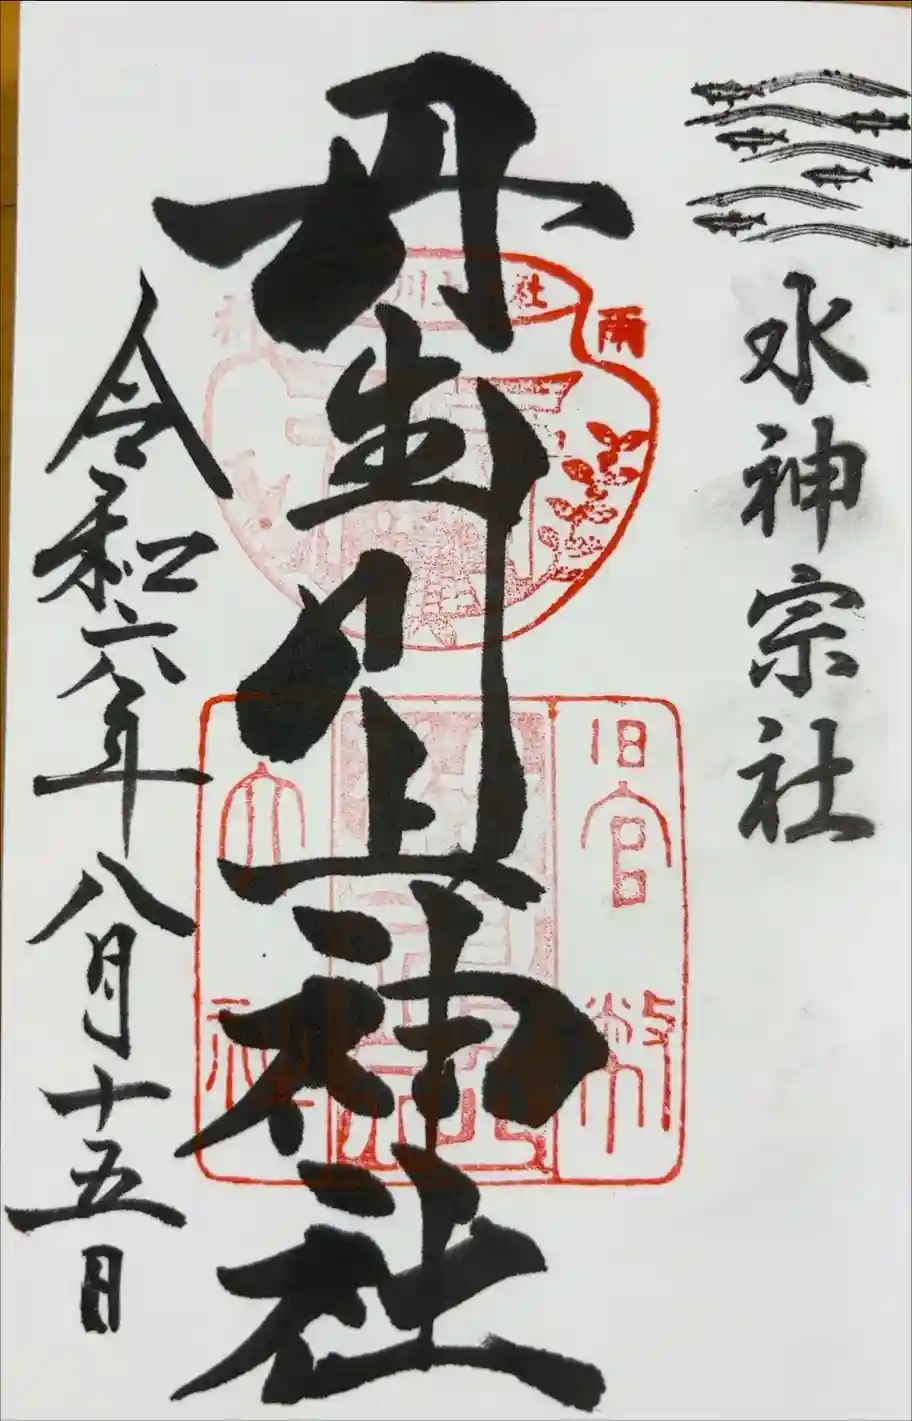 水神宗社
丹生川上神社
令和六年八月十五日
雨
川上
社
旧官幣
大
社